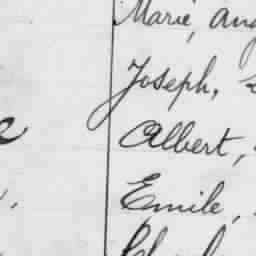 Marie, Aug
Joseph,
Albert,
Emile,